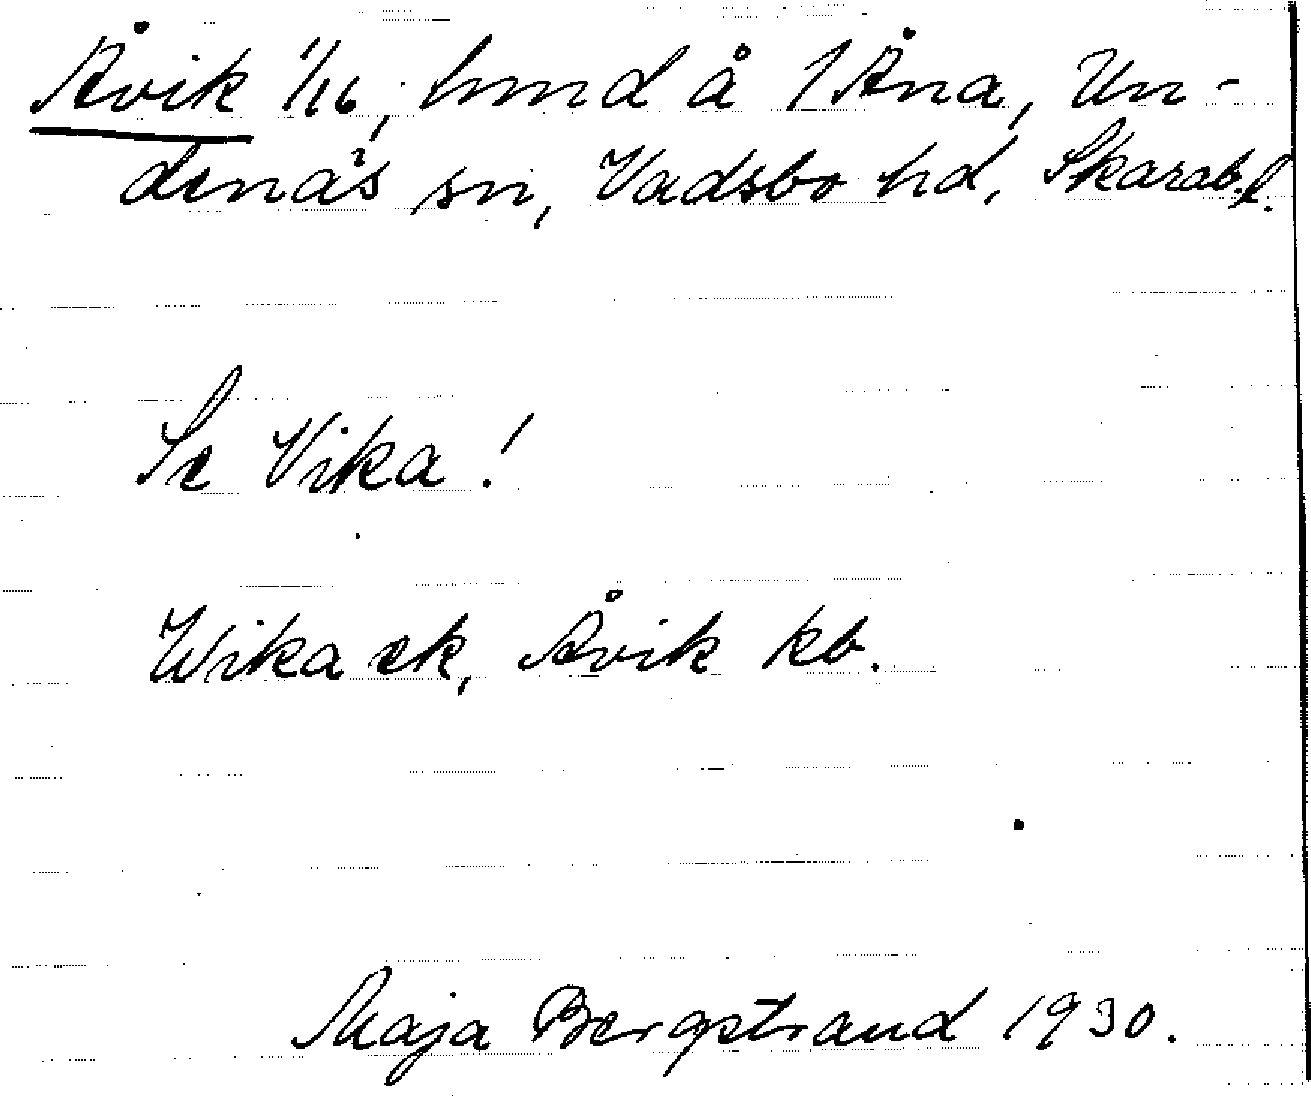 Åvik 1/16, hmd å 1 Åna, Un-
denäs sn, Vadsbo hd, Skarab.l.
Se Vika!
Wika ek, Åvik kb.
Maja Bergstrand 1930.